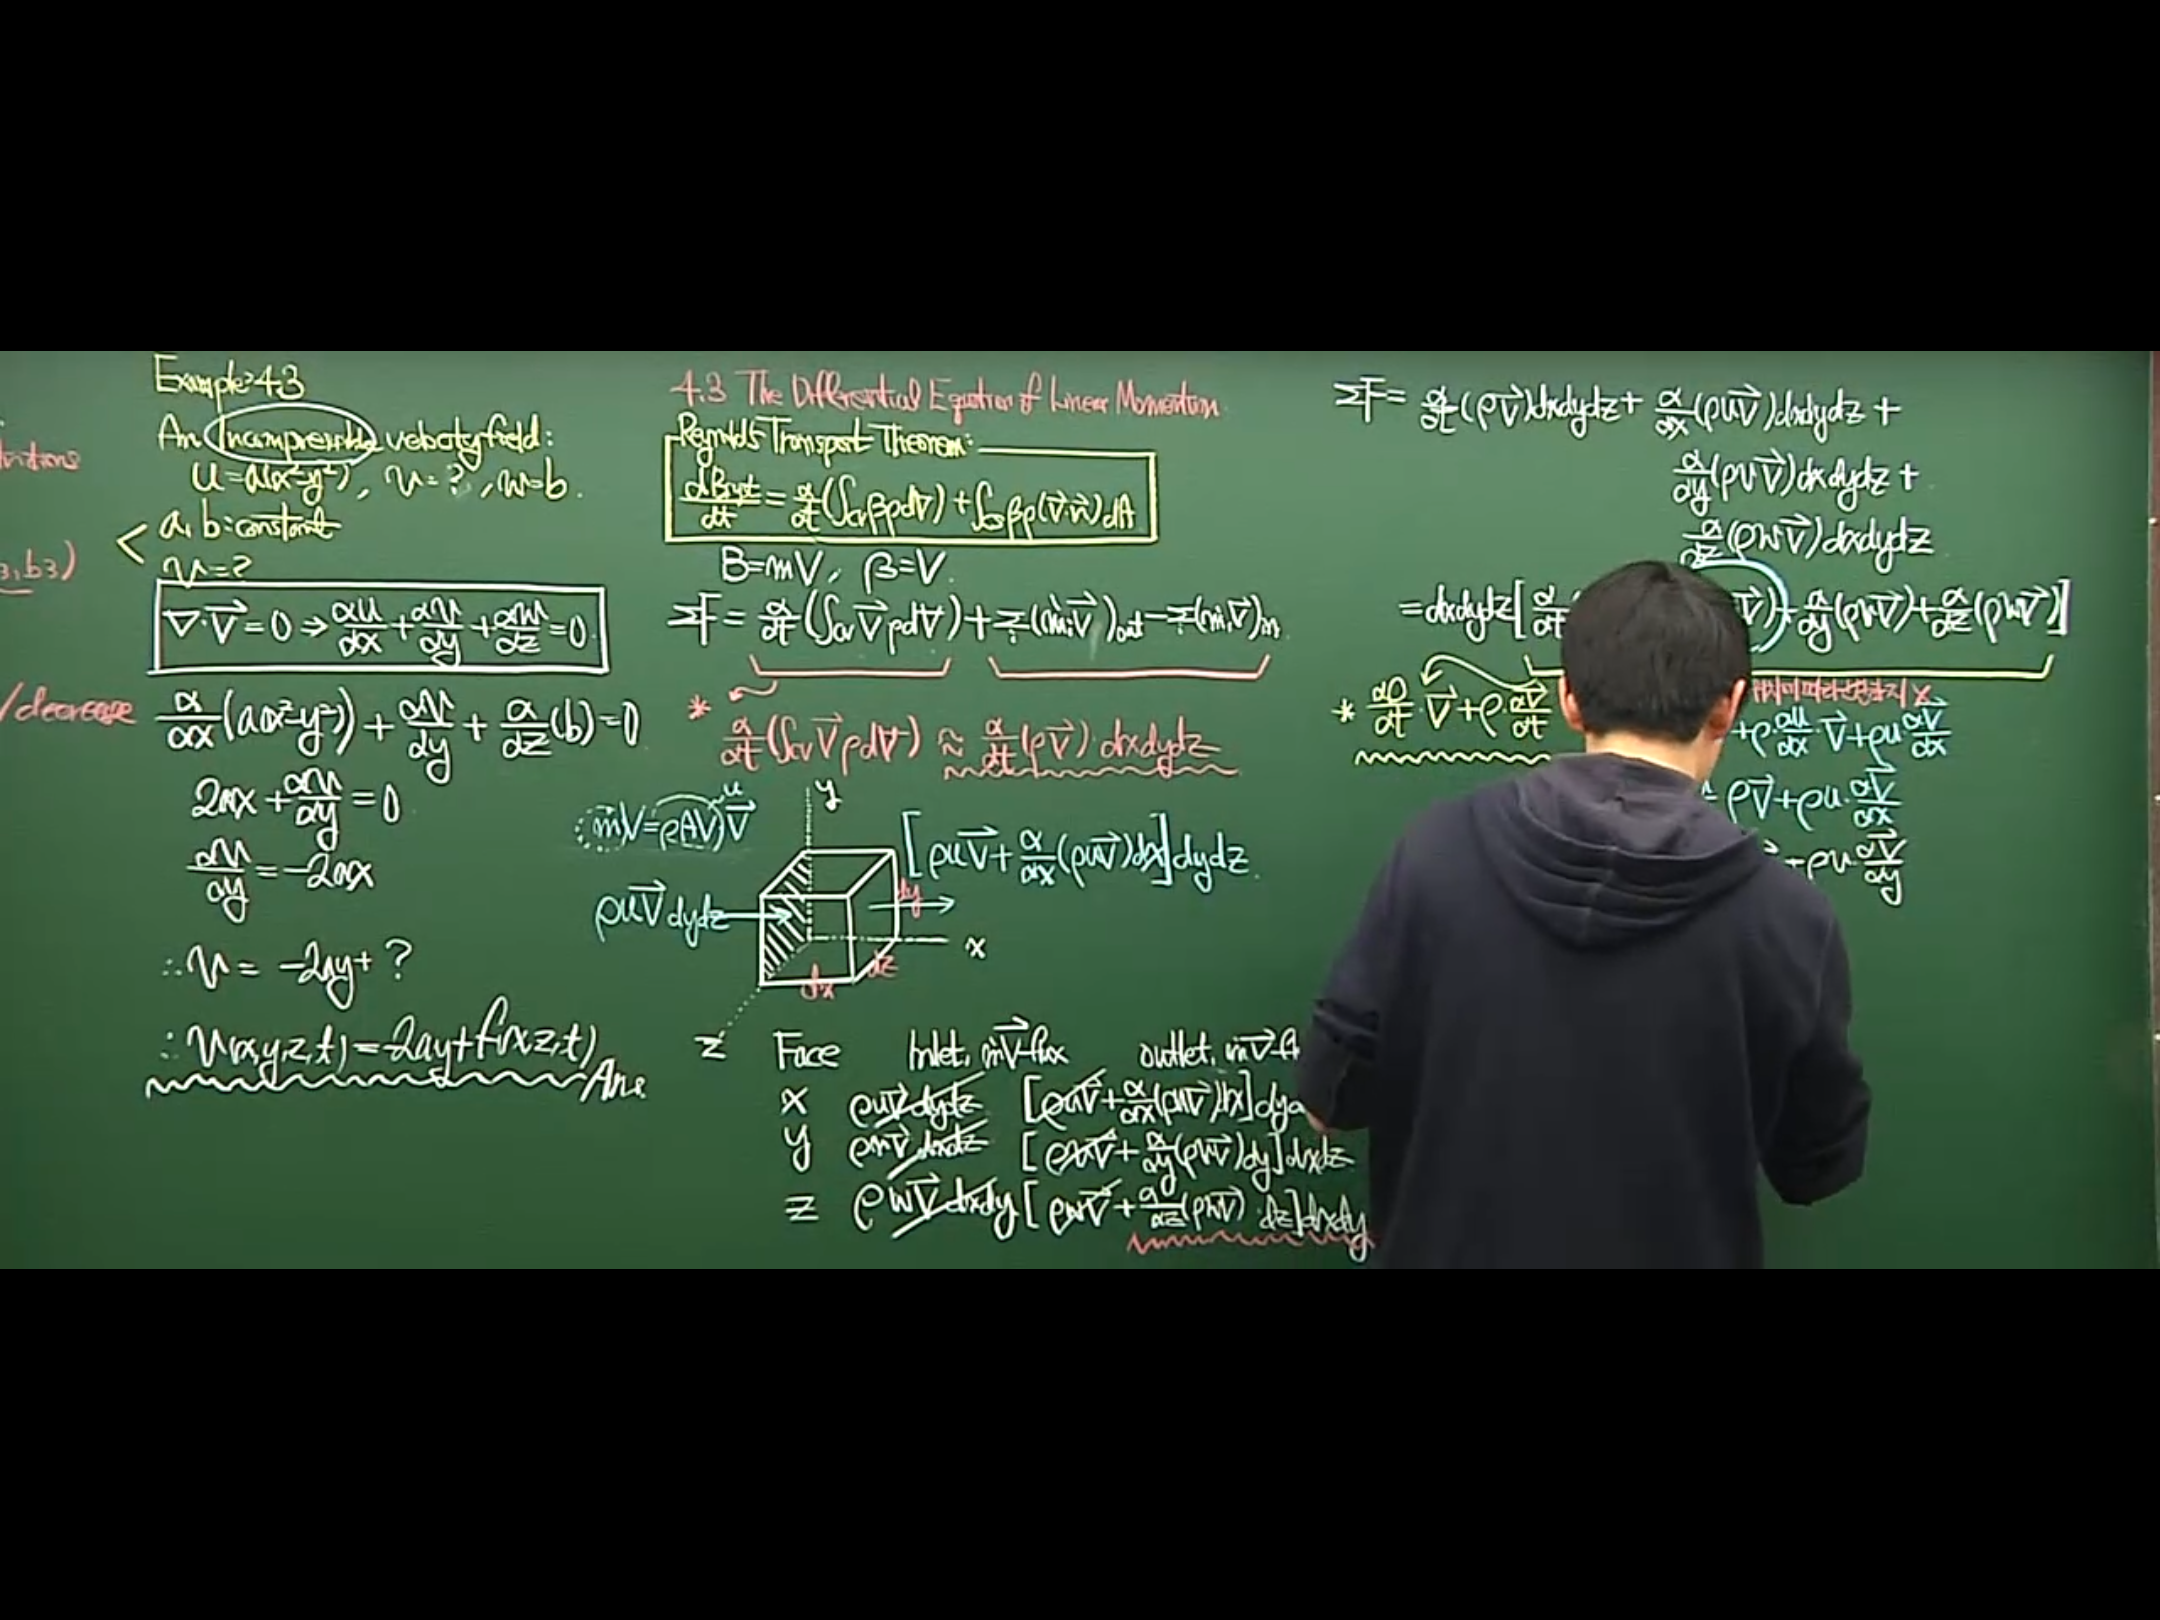 Example 4.3
An Incompressible velocity field:
u=a(x²-y²), v=?, w=b.
a, b: constant
v=?
∇·V⃗=0 → ∂u/∂x+∂v/∂y+∂w/∂z=0
∂/∂x(a(x²-y²))+∂v/∂y+∂/∂z(b)=0
2ax+∂v/∂y=0
∂v/∂y=-2ax
∴v= -2ay+ ?
∴v(x,y,z,t)=-2ay+f(x,z,t)
Ans.
3, b3)
/decrease
4.3 The Differential Equation of Linear Momentum
Reynolds Transport Theorem:
dBsyst/dt=∂/∂t(∫cv βρdV)+∫cs βρ(V⃗·n⃗)dA
B=mV, β=V.
ΣF= ∂/∂t(∫cv V⃗ρdV)+Σ(ṁiV⃗)out-Σ(ṁiV⃗)in
* ∂/∂t(∫cv V⃗ρdV) ≈ ∂/∂t(ρV⃗) dxdydz
ṁV=ρ(AV)V⃗
u
y
[ρuV⃗+∂/∂x(ρuV⃗)dx]dydz
ρuV⃗dydz
dy
x
dz
dx
z
Face inlet, ṁV⃗ flux outlet, ṁV⃗ fl
x ρuV⃗dydz [ρuV⃗+∂/∂x(ρuV⃗)dx]dy
y ρvV⃗dxdz [ρvV⃗+∂/∂y(ρvV⃗)dy]dxdz
z ρwV⃗dxdy [ρwV⃗+∂/∂z(ρwV⃗)dz]dxdy
ΣF= ∂/∂t(ρV⃗)dxdydz+ ∂/∂x(ρuV⃗)dxdydz+
∂/∂y(ρvV⃗)dxdydz+
∂/∂z(ρwV⃗)dxdydz
=dxdydz[∂/∂t V⃗)+∂/∂y(ρvV⃗)+∂/∂z(ρwV⃗)]
* ∂ρ/∂t·V⃗+ρ·∂V⃗/∂t
따라 변하지 x
+ρ·∂u/∂x·V⃗+ρu∂V⃗/∂x
ρV⃗+ρu·∂V⃗/∂x
+ρv·∂V⃗/∂y